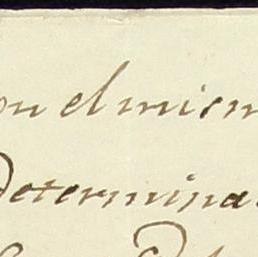 on el mism
Determina